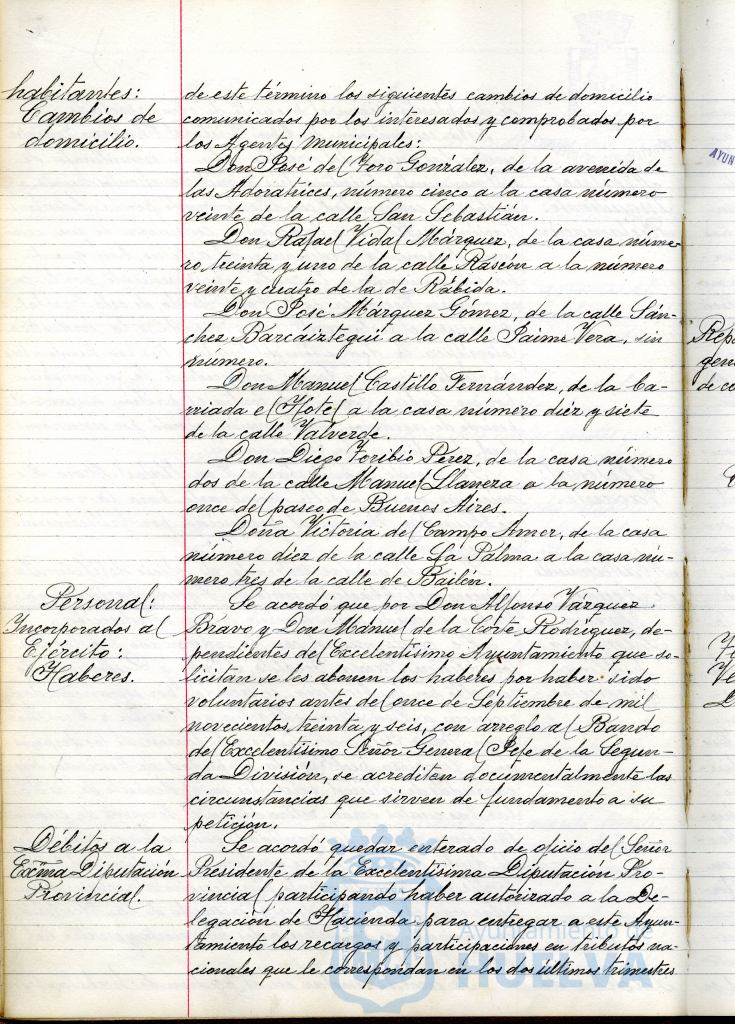 habitantes:
Cambios de
domicilio.
de este término los siguientes cambios de domicilio
comunicados por los interesados y comprobados por
los Agentes municipales:
Don José del Toro González, de la avenida de
las Adoratrices, número cinco a la casa número
veinte de la calle San Sebastián.
Don Rafael Vidal Márquez, de la casa núme-
ro treinta y uno de la calle Rascón a la número
veinte y cuatro de la de Rábida.
Don José Márquez Gómez, de la calle Sán-
chez Barcáiztegui a la calle Jaime Vera, sin
número.
Don Manuel Castillo Fernández, de la ba-
rriada el Hotel a la casa número diez y siete
de la calle Valverde.
Don Diego Toribio Pérez, de la casa número
dos de la calle Manuel Llaneza a la número
once del paseo de Buenos Aires.
Doña Victoria del Campo Amer, de la casa
número diez de la calle La Palma a la casa nú-
mero tres de la calle de Bailén.
Personal:
Incorporados al
Ejército:
Haberes.
Se acordó que por Don Alfonso Vázquez
Bravo y Don Manuel de la Corte Rodríguez, de-
pendientes del Excelentísimo Ayuntamiento que so-
licitan se les abonen los haberes por haber sido
voluntarios antes del once de Septiembre de mil
novecientos treinta y seis, con arreglo al Bando
del Excelentísimo Señor General Jefe de la Segun-
da División, se acrediten documentalmente las
circunstancias que sirven de fundamento a su
petición.
Débitos a la
Excma Diputación
Provincial.
Se acordó quedar enterado de oficio del Señor
Presidente de la Excelentísima Diputación Pro-
vincial participando haber autorizado a la De-
legación de Hacienda para entregar a este Ayun-
tamiento los recargos y participaciones en tributos na-
cionales que le correspondan en los dos últimos trimestres
Ayuntamiento de
HUELVA
AYUN
Repa
gen
de co